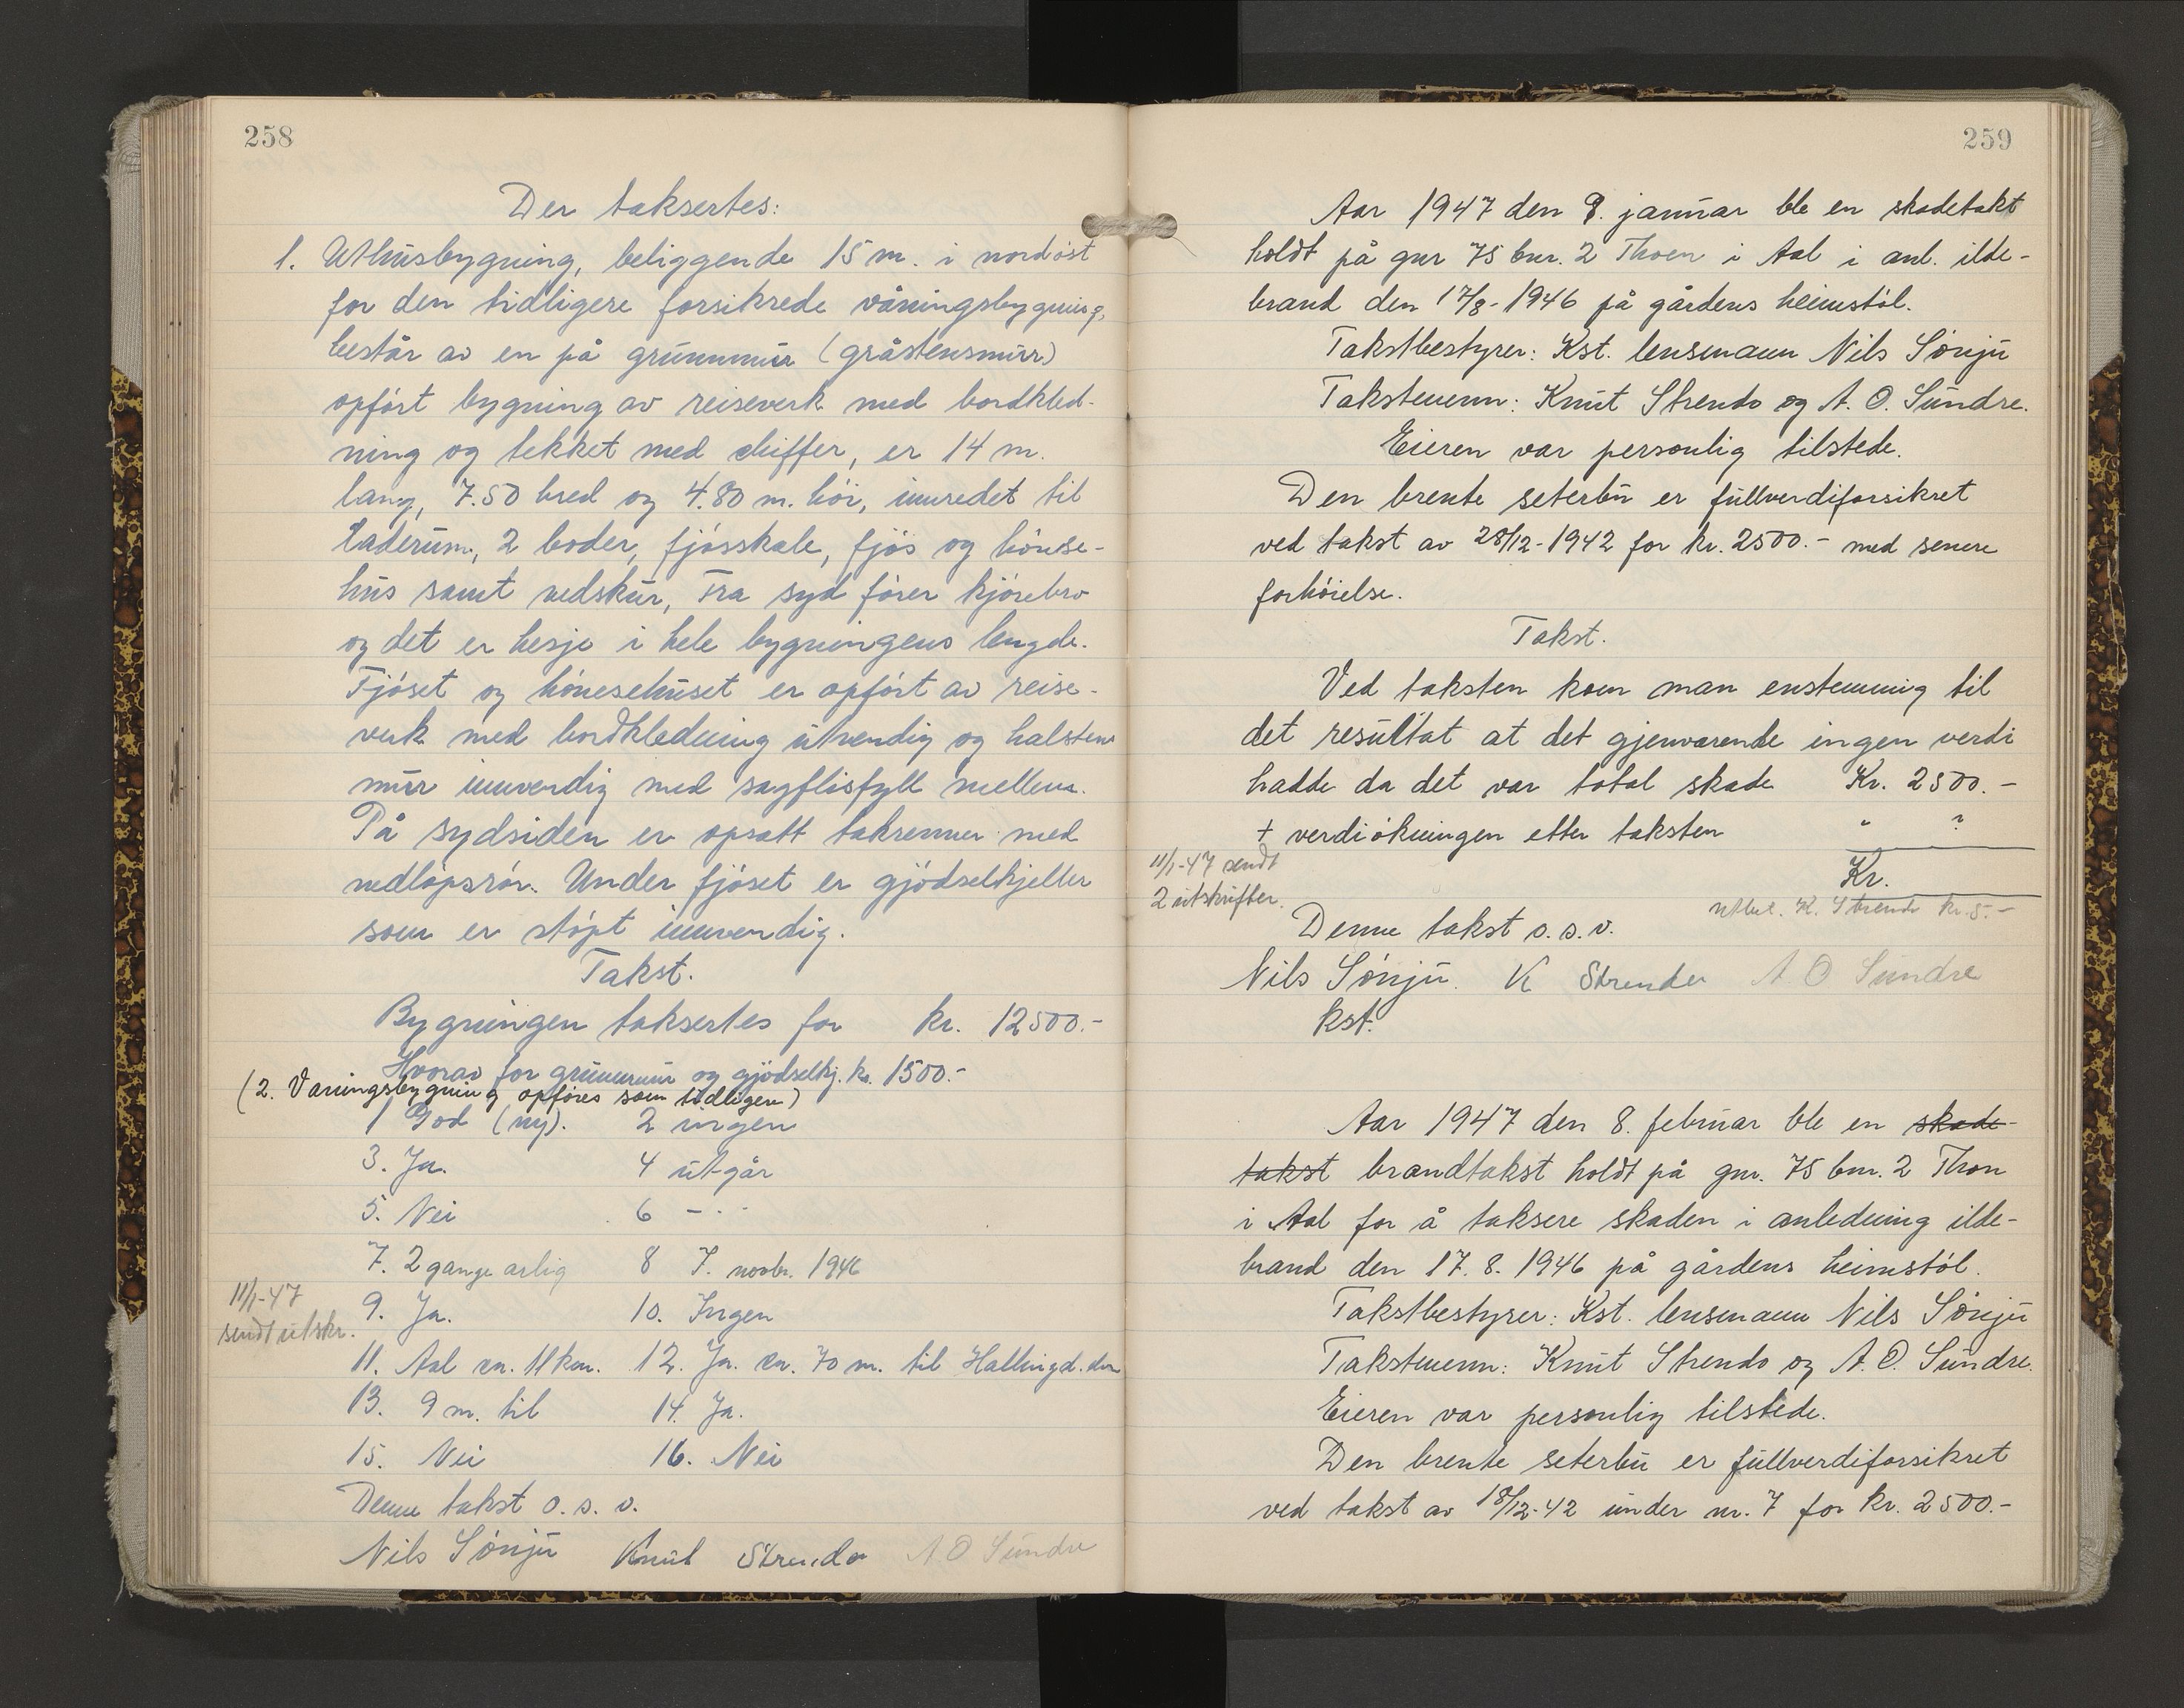 258
Der taksertes:
1. Uthusbygning, beliggende 15 m. i nordöst
for den tidligere forsikrede våningsbygning,
består av en på grunnmur (gråstensmur)
opfört bygning av reiseverk med bordkled-
ning og tekket med skiffer, er 14 m.
lang, 7.50 bred og 4.80 m. höi, innredet til
laderum, 2 boder, fjösskale, fjös og hönse-
hus samt vedskur, Fra syd förer kjörebro
og det er hesje i hele bygningens lengde.
Fjöset og hönsehuset er opfört av reise-
verk med bordkledning utvendig og halstens
mur innvendig med sagflisfyll mellem.
På sydsiden er opsatt takrenner med
nedlöpsrör. Under fjöset er gjödselkjeller
som er stöpt innvendig.
Takst.
Bygningen taksertes for kr. 12500.-
Hvorav for grunnmur og gjödselkj. kr. 1500.-
(2. Våningsbygning opföres som tidligere)
1 God (ny). 2 ingen
3. Ja. 4 utgår
5. Nei 6 - · ·
7. 2 gange arlig 8 7. novbr. 1946
11/1-47
sendt utskr.
9. Ja. 10. Ingen
11. Aal ca. 11 km. 12. Ja. ca. 70 m. til Hallingd.elva
13. 9 m. til 14. Ja.
15. Nei 16. Nei
Denne takst o. s. v.
Nils Sönju Knut Strando A O Sundre
259
Aar 1947 den 8. januar ble en skadetakst
holdt på gnr 75 bnr. 2 Thoen i Aal i anl. ilde-
brand den 17/8-1946 på gårdens heimstöl.
Takstbestyrer: Kst. lensmann Nils Sönju
Takstmenn: Knut Strando og A. O. Sundre.
Eieren var personlig tilstede.
Den brente seterbu er fullverdiforsikret
ved takst av 28/12-1942 for kr. 2500.- med senere
forhöielse.
Takst.
Ved taksten kom man enstemmig til
det resultat at det gjenværende ingen verdi
hadde da det var total skade Kr. 2500.-
+ verdiökningen etter taksten " ?
Kr.
11/1-47 sendt
2 utskrifter.
utbet. K. Strando kr. 5.-
Denne takst o. s. v.
Nils Sönju. K Strando A O Sundre
kst.
Aar 1947 den 8. februar ble en skade-
takst brandtakst holdt på gnr. 75 bnr. 2 Thoen
i Aal for å taksere skaden i anledning ilde-
brand den 17. 8. 1946 på gårdens heimstöl.
Takstbestyrer: Kst. lensmann Nils Sönju
Takstmenn: Knut Strando og A. O. Sundre.
Eieren var personlig tilstede.
Den brente seterbu er fullverdiforsikret
ved takst av 18/12-42 under nr. 7 for kr. 2500.-